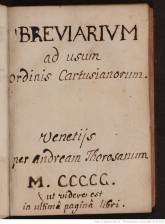 BREVIARIVM
ad usum
ordinis Cartusianorum.
Venetijs
per Andream Thoresanum
M. CCCCC.
ut videre est
in ultimâ paginâ libri.